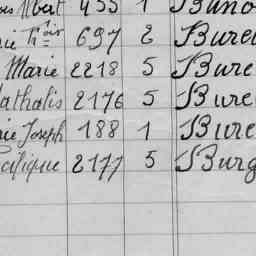 Albert 455 1 Buno
rie Fois 697 2 Bure
Marie 2218 5 Bure
Nathalis 2176 5 Bure
rie Joseph 188 1 Bure
Pacifique 2177 5 Burg